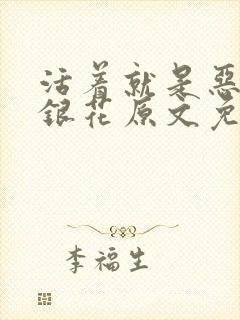 活着就是恶
银花原文免
李福生